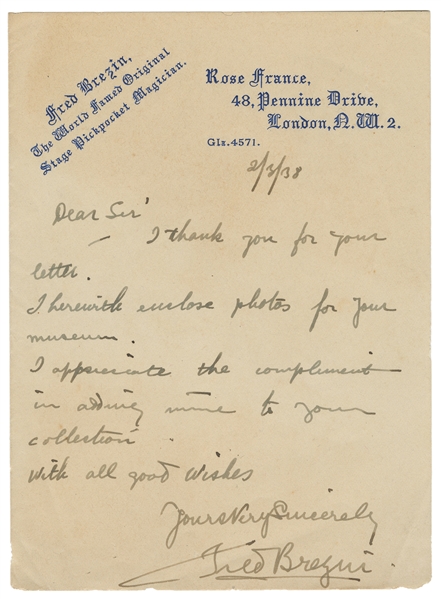 Fred Brezin,
The World Famed Original
Stage Pickpocket Magician.
Rose France,
48, Pennine Drive,
London, N.W. 2.
Gla. 4571.
2/3/38
Dear Sir'
— I thank you for your
letter.
I herewith enclose photos for your
museum.
I appreciate the compliment
in adding mine to your
collection
with all good wishes
Yours Very Sincerely
Fred Brezin.